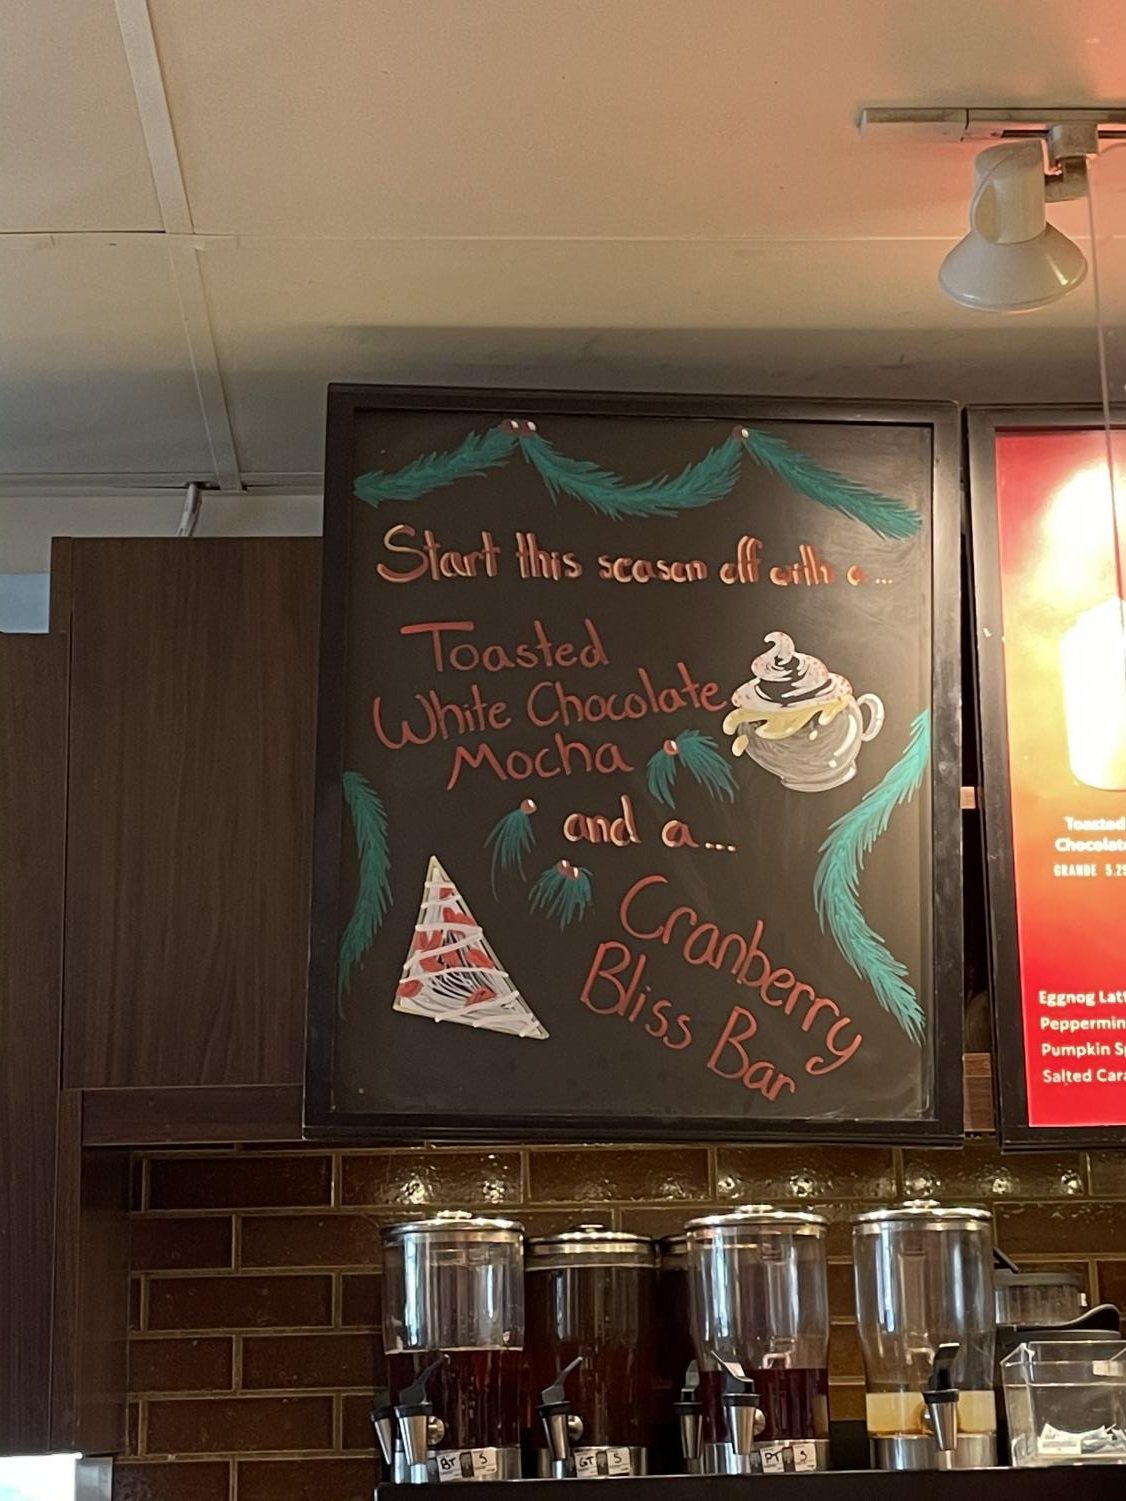 Start this season off with a...
Toasted
White Chocolate
Mocha
and a...
Cranberry
Bliss Bar
Toasted
Chocolate
GRANDE 5.25
Eggnog Latt
Peppermin
Pumpkin Sp
Salted Cara
BT 5
GT 5
PT 5